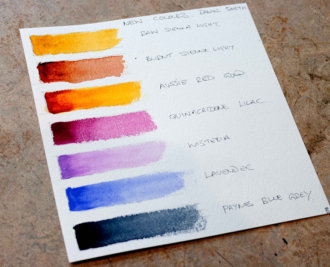 NEW COLOURS, DANIEL SMITH
RAW SIENNA LIGHT
BURNT SIENNA LIGHT
AUSSIE RED GOLD
QUINACRIDONE LILAC
WISTERIA
LAVENDER
PAYNE BLUE GREY